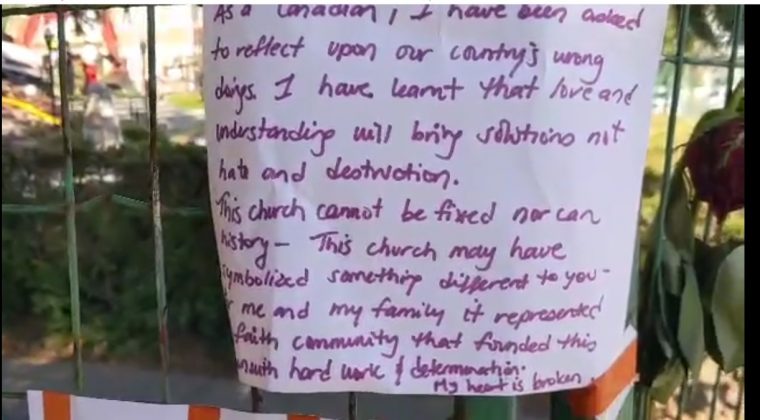 As a Canadian, I have been asked
to reflect upon our country's wrong
doings. I have learnt that love and
understanding will bring solutions not
hate and destruction.
This church cannot be fixed nor can
history- This church may have
symbolized something different to you-
me and my family it represented
faith community that founded this
with hard work & determination.
My heart is broken.